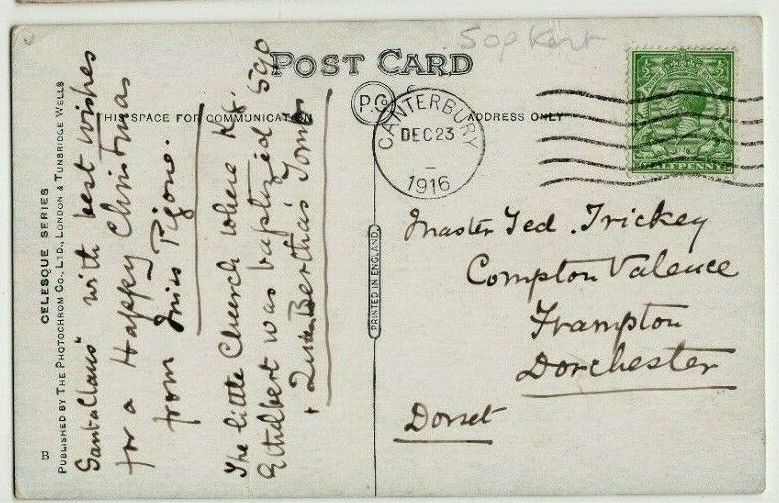 50p Kent
POST CARD
P.Co
THIS SPACE FOR COMMUNICATION
ADDRESS ONLY
CANTERBURY
DEC 23
1916
HALFPENNY
CELESQUE SERIES
PUBLISHED BY THE PHOTOCHROM CO., LTD., LONDON & TUNBRIDGE WELLS
B
PRINTED IN ENGLAND
with best wishes
for a Happy Christmas
from Miss Pigou.
The little Church where Kg.
Ethelbert was baptized 590
+ Queen Bertha's Tomb
Master Ted. Trickey
Compton Valence
Frampton
Dorchester
Dorset